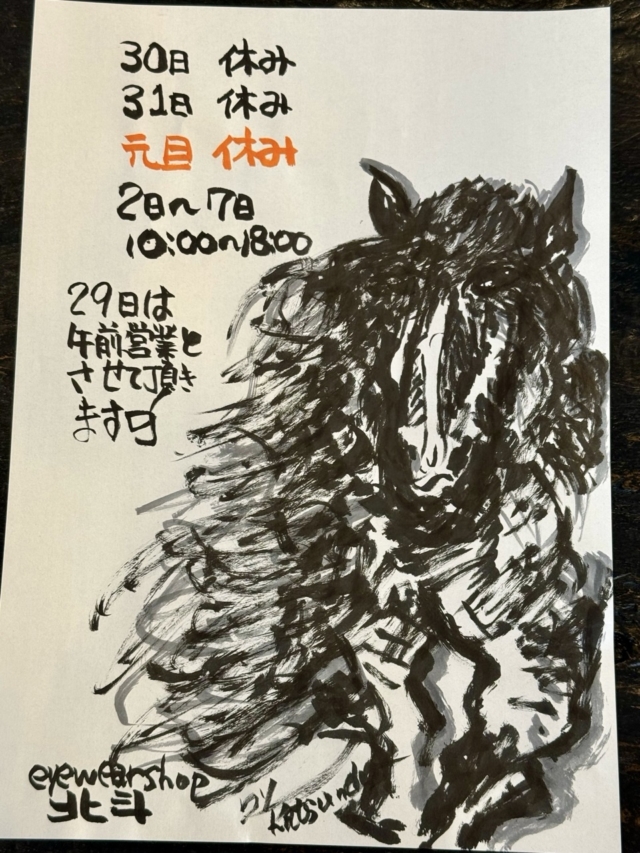 30日 休み
31日 休み
元旦 休み
2日〜7日
10:00〜18:00
29日は
午前営業と
させて頂き
ます
eyewearshop
北斗
by